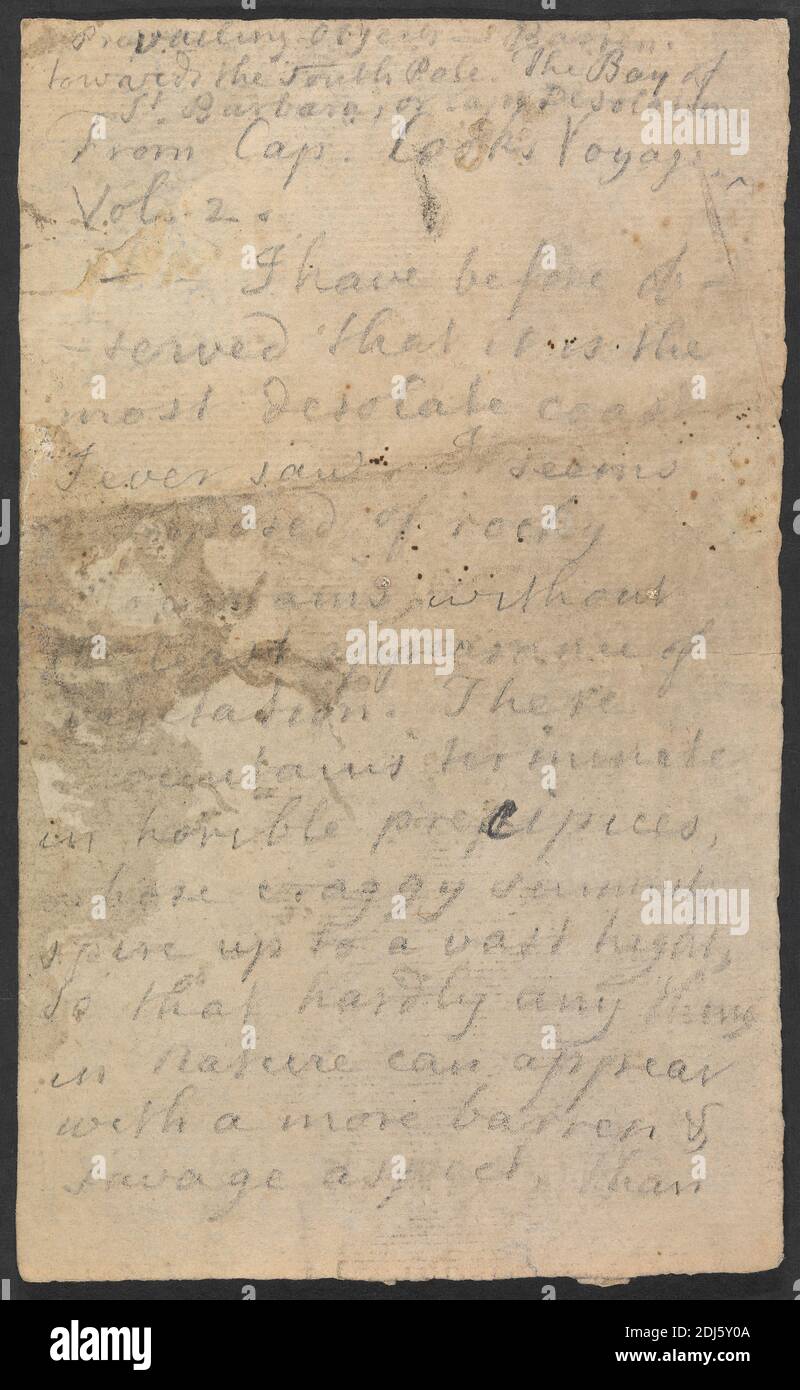 Prevailing Objects – Barren.
towards the South Pole. The Bay of
St. Barbara, or Cape Desolation
From Cap. Cook's Voyage
Vol. 2.
– – I have before ob-
-served that it is the
most desolate coast
I ever saw. I seems
composed of rocky
mountains without
the least appearance of
vegetation. These
mountains terminate
in horible precipices,
whose craggy summits
spire up to a vast hight,
so that hardly any thing
in nature can appear
with a more barren &
savage aspect, than
alamy
Image ID: 2DJ5Y0A
www.alamy.com